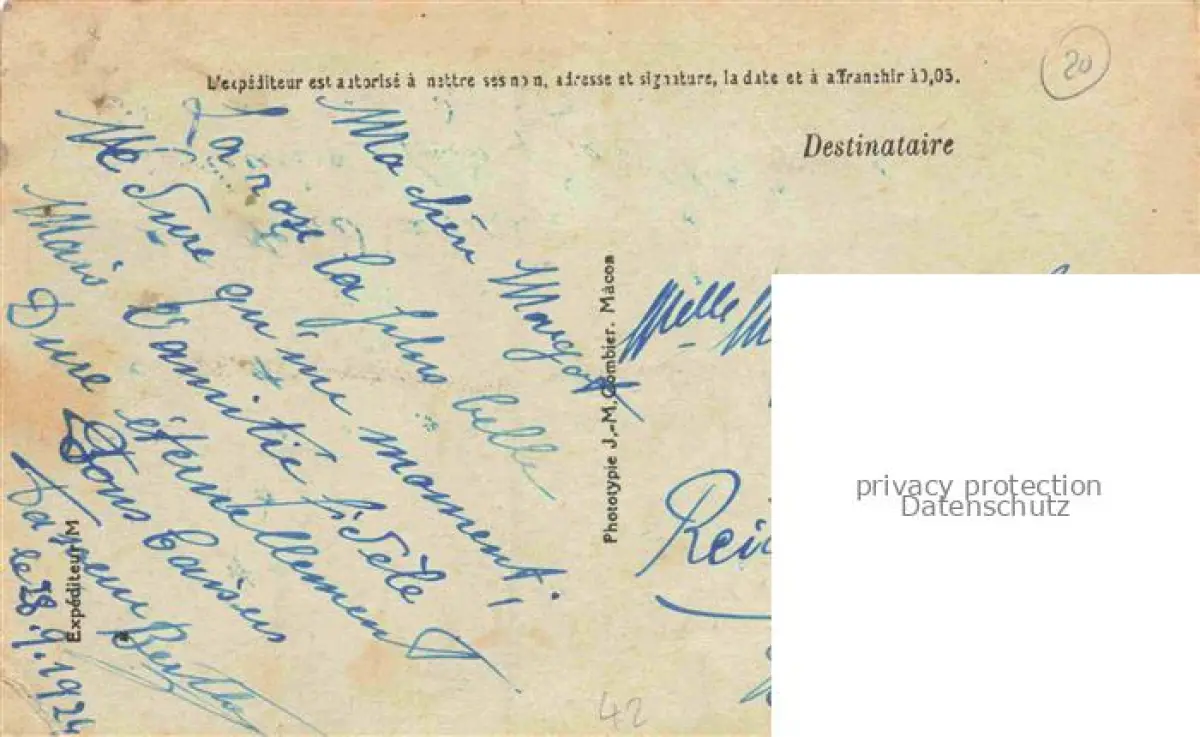 20
L'expéditeur est autorisé à mettre ses nom, adresse et signature, la date et à affranchir à 0,05.
Destinataire
Ma chère Margot
La rose la plus belle
Ne dure qu'un moment,
Mais l'amitié fidèle
Dure éternellement
Bons baisers
Ta soeur Berthe
le 28.9.1924
Expéditeur M
Phototypie J.-M. Combier. Mâcon
Melle
privacy protection
Datenschutz
42